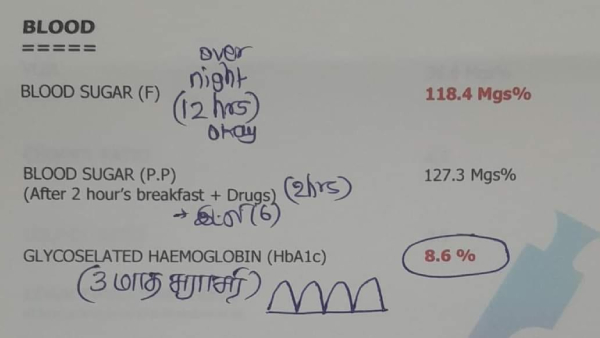 BLOOD
=====
over
night
BLOOD SUGAR (F) (12 hrs) 118.4 Mgs%
okay
BLOOD SUGAR (P.P) 127.3 Mgs%
(After 2 hour's breakfast + Drugs) (2hrs)
→ இட்லி (6)
GLYCOSELATED HAEMOGLOBIN (HbA1c) 8.6 %
(3 மாத சராசரி)